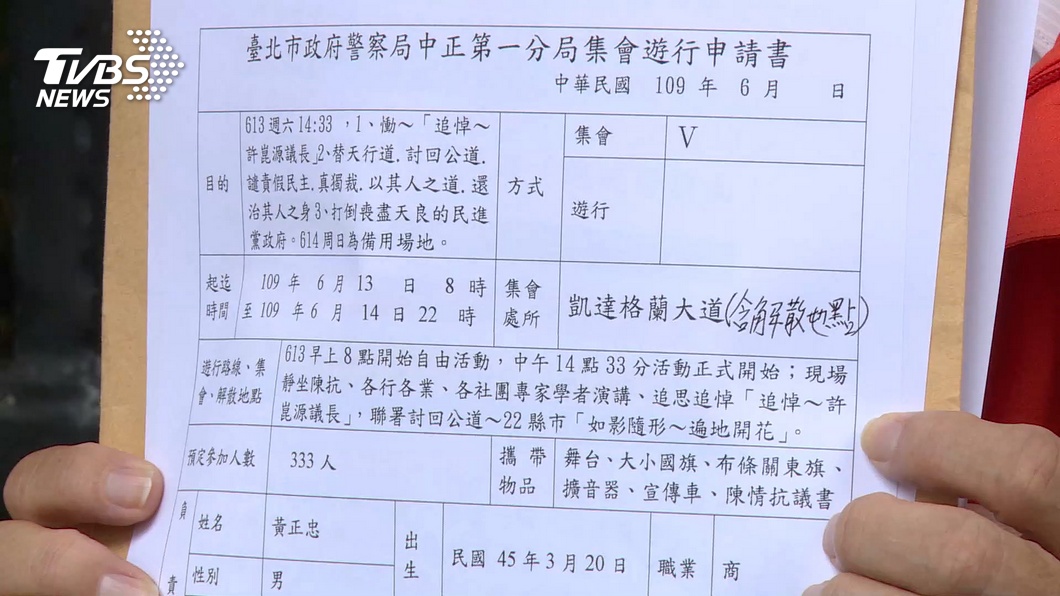 TVBS
NEWS
臺北市政府警察局中正第一分局集會遊行申請書
中華民國 109 年 6 月 日
目的
613週六14:33 ,1、慟～「追悼～
許崑源議長」2、替天行道.討回公道.
譴責假民主.真獨裁.以其人之道.還
治其人之身3、打倒喪盡天良的民進
黨政府。614周日為備用場地。
方式
集會
V
遊行
起迄
時間
109 年 6 月 13 日 8 時
至 109 年 6 月 14 日 22 時
集會
處所
凱達格蘭大道(含解散地點)
遊行路線、集
會、解散地點
613早上8點開始自由活動，中午14點33分活動正式開始；現場
靜坐陳抗、各行各業、各社團專家學者演講、追思追悼「追悼～許
崑源議長」，聯署討回公道～22縣市「如影隨形～遍地開花」。
預定參加人數
333人
攜帶
物品
舞台、大小國旗、布條關東旗、
擴音器、宣傳車、陳情抗議書
負
責
姓名
黃正忠
出
生
民國 45 年 3 月 20 日
職業
商
性別
男